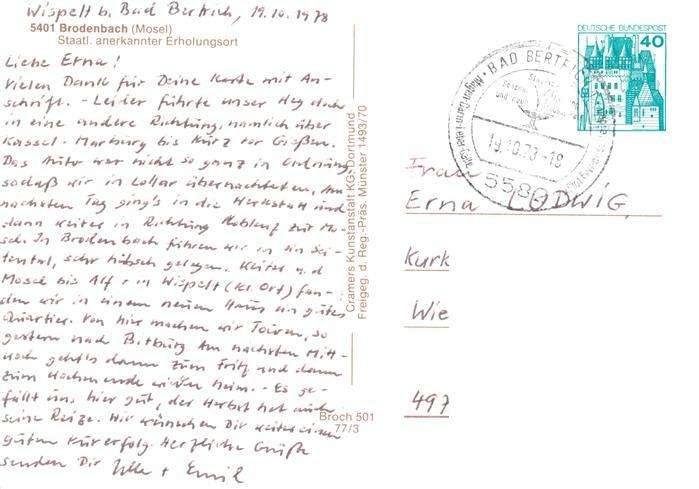 Wispelt b. Bad Bertrich, 19.10.1978
5401 Brodenbach (Mosel)
Staatl. anerkannter Erholungsort
Liebe Erna!
Vielen Dank für Deine Karte mit An-
schrift. - Leider führte unser Weg doch
in eine andere Richtung, nämlich über
Kassel - Marburg bis kurz vor Gießen.
Das Auto war nicht so ganz in Ordnung,
sodaß wir in Lollar übernachteten. Am
nächsten Tag ging's in die Werkstatt und
dann weiter in Richtung Koblenz zur Mo-
sel. In Brodenbach fuhren wir in ein Sei-
tental, sehr hübsch gelegen. Weiter a. d.
Mosel bis Alf + in Wispelt (kl. Ort) fan-
den wir in einem neuen Haus ein gutes
Quartier. Von hier machen wir Touren, so
gestern nach Bitburg. Am nächsten Mitt-
woch geht's dann zum Fritz und dann
zum Wochenende wieder heim. - Es ge-
fällt uns hier gut, der Herbst hat auch
seine Reize. Wir wünschen Dir weiter einen
guten Kurerfolg. Herzliche Grüße
senden Dir + Emil
Cramers Kunstanstalt KG, Dortmund
Freigeg. d. Reg.-Präs. Münster 1493/70
Broch 501
77/3
DEUTSCHE BUNDESPOST
40
BAD BERTRICH
19.10.78-18
558
Frau
Erna LUDWIG,
Kurk
Wie
497